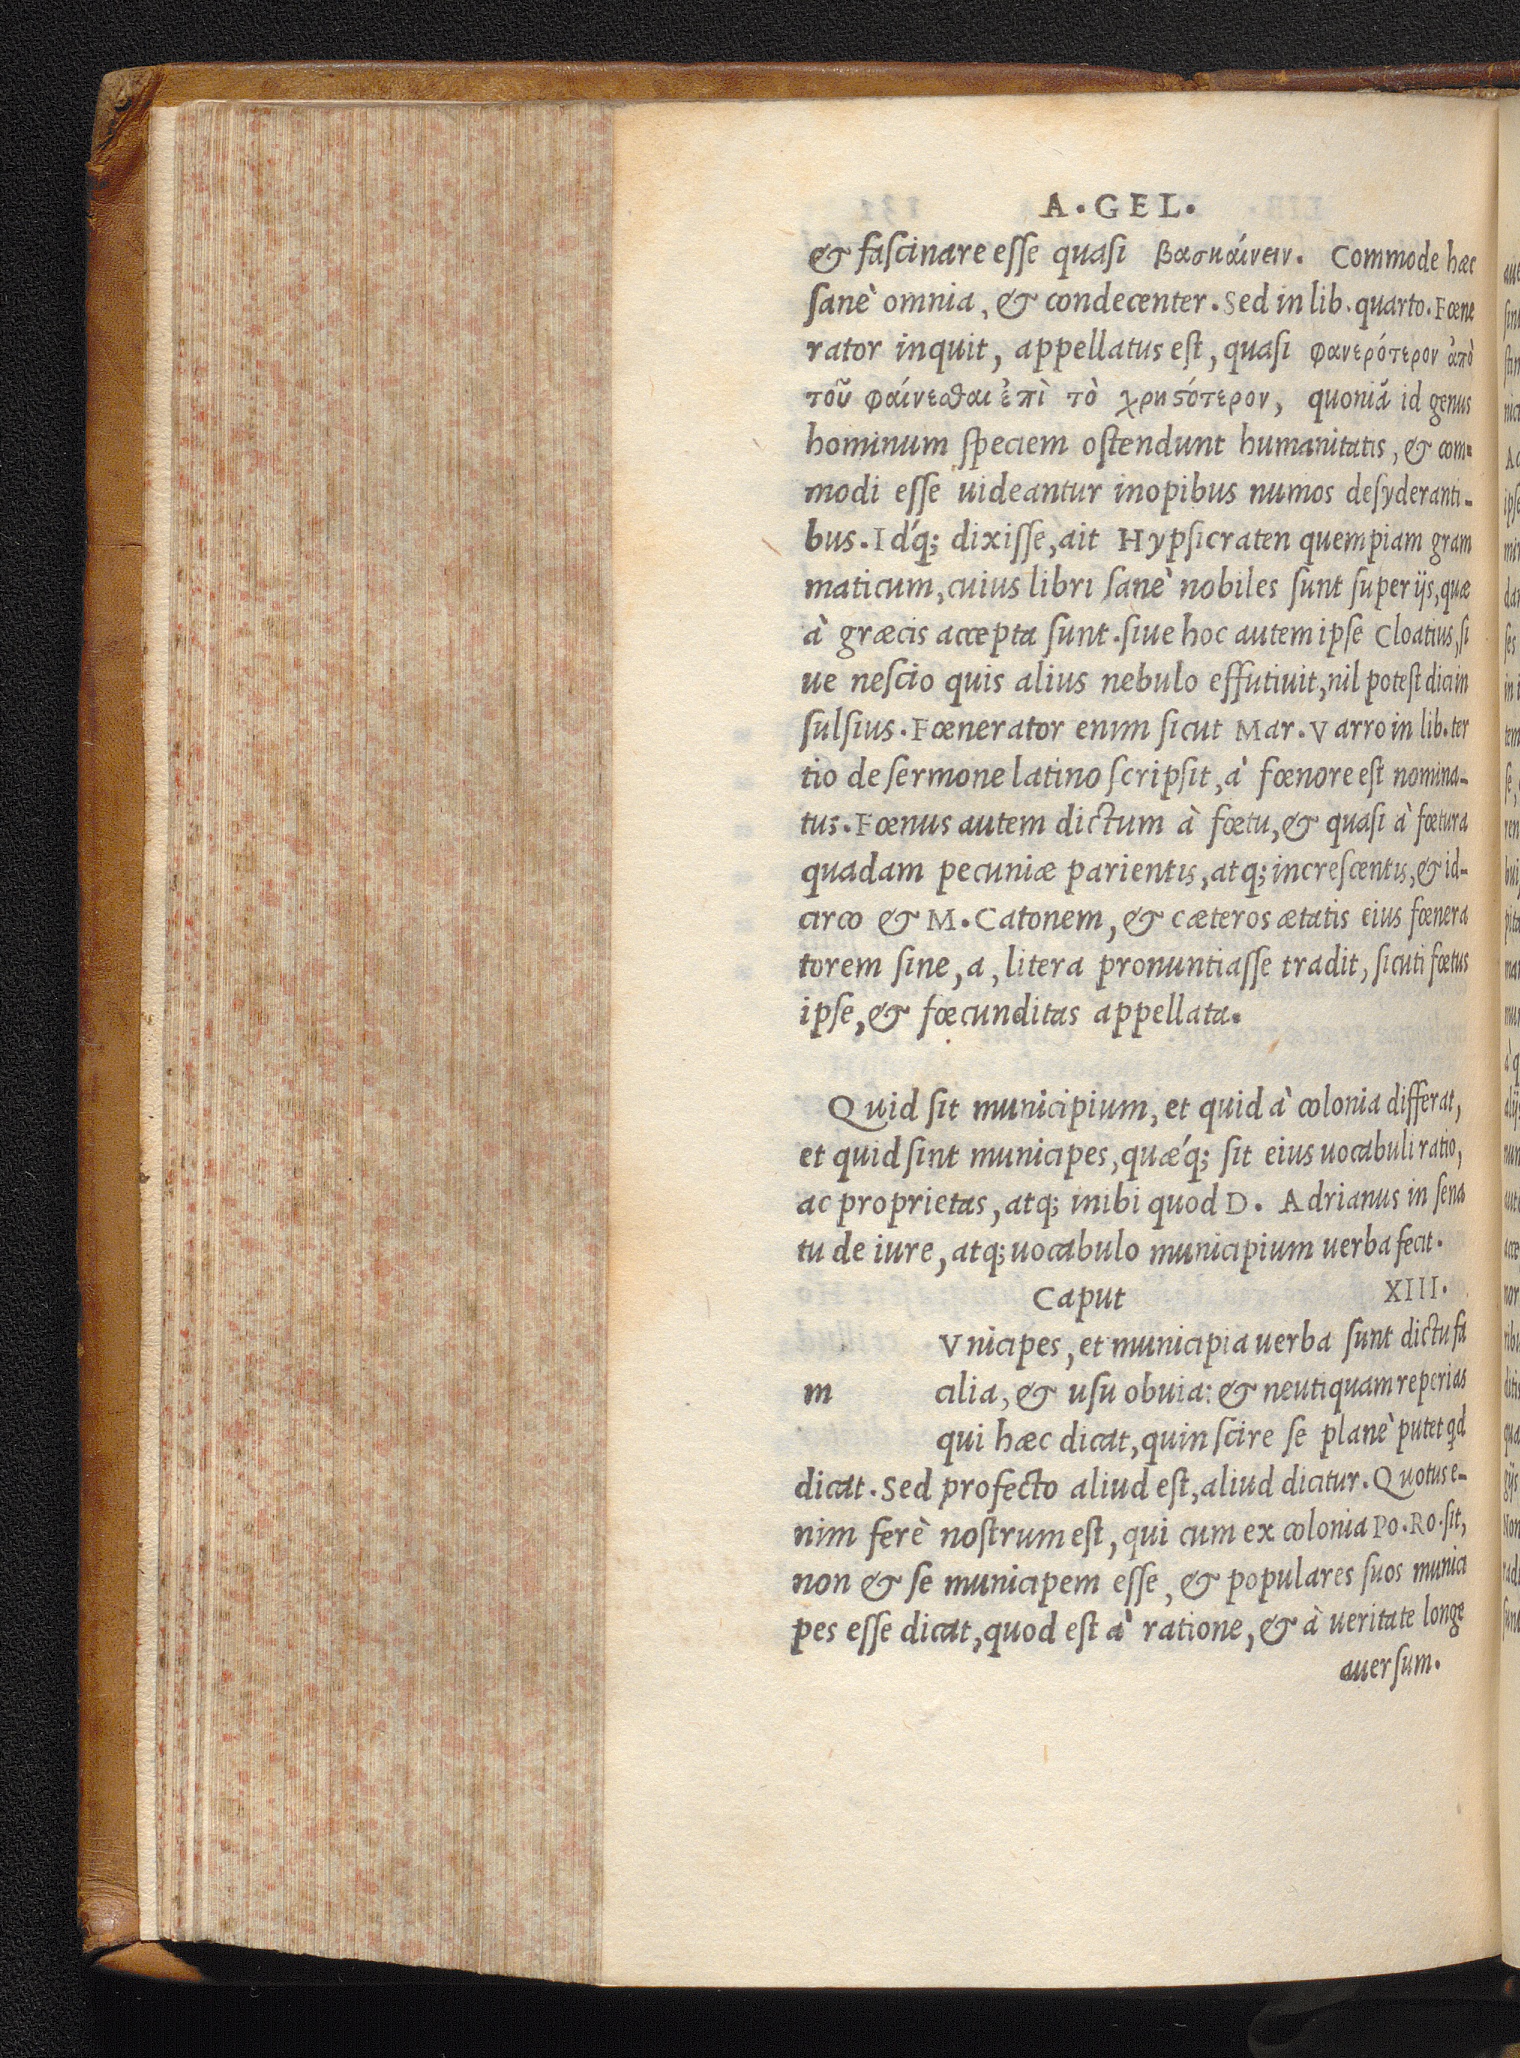 A.GEL.
& faſcinare eſſe quaſi βασκαίνειν. Commode hæc
ſanè omnia, & condecenter. Sed in lib. quarto. Fœne
rator inquit, appellatus eſt, quaſi φανερότερον ἀπὸ
τοῦ φαίνεσθαι ἐπὶ τὸ χρηϛότερον, quoniã id genus
hominum ſpeciem oſtendunt humanitatis, & com-
modi eſſe uideantur inopibus numos deſyderanti-
bus. Idq́; dixiſſe, ait Hypſicraten quempiam gram
maticum, cuius libri ſanè nobiles ſunt ſuper ijs, quæ
à græcis accepta ſunt. ſiue hoc autem ipſe Cloatius, ſi
ue neſcio quis alius nebulo effutiuit, nil poteſt dici in
ſulſius. Fœnerator enim ſicut Mar. Varro in lib. ter
tio de ſermone latino ſcripſit, à fœnore eſt nomina-
tus. Fœnus autem dictum à fœtu, & quaſi à fœtura
quadam pecuniæ parientis, atq; increſcentis, & id-
circo & M. Catonem, & cæteros ætatis eius fœnera
torem ſine, a, litera pronuntiaſſe tradit, ſicuti fœtus
ipſe, & fœcunditas appellata.
Quid ſit municipium, et quid à colonia differat,
et quid ſint municipes, quæq́; ſit eius uocabuli ratio,
ac proprietas, atq; inibi quod D. Adrianus in ſena
tu de iure, atq; uocabulo municipium uerba fecit.
Caput XIII.
Vnicipes, et municipia uerba ſunt dictu fa
m cilia, & uſu obuia: & neutiquam reperias
qui hæc dicat, quin ſcire ſe planè putet qd
dicat. Sed profecto aliud eſt, aliud dicitur. Quotus e-
nim ferè noſtrum eſt, qui cum ex colonia Po. Ro. ſit,
non & ſe municipem eſſe, & populares ſuos munici
pes eſſe dicat, quod eſt à ratione, & à ueritate longe
auerſum.